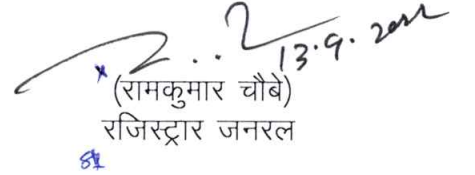 13.9.2022
(रामकुमार चौबे)
रजिस्ट्रार जनरल